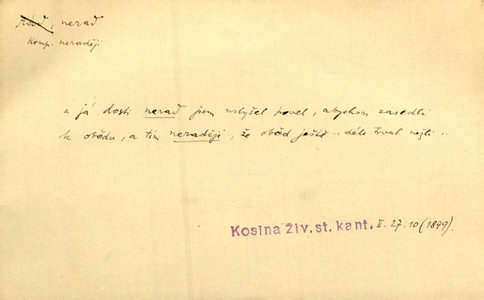 rad, nerad
Komp. neraději
a já dosti nerad jsem uslyšel povel, abychom zasedli
k obědu, a tím neraději, že oběd ještě .. déle trval nežli ..
Kosina Živ. st. kant. II. 27. 10 (1899).